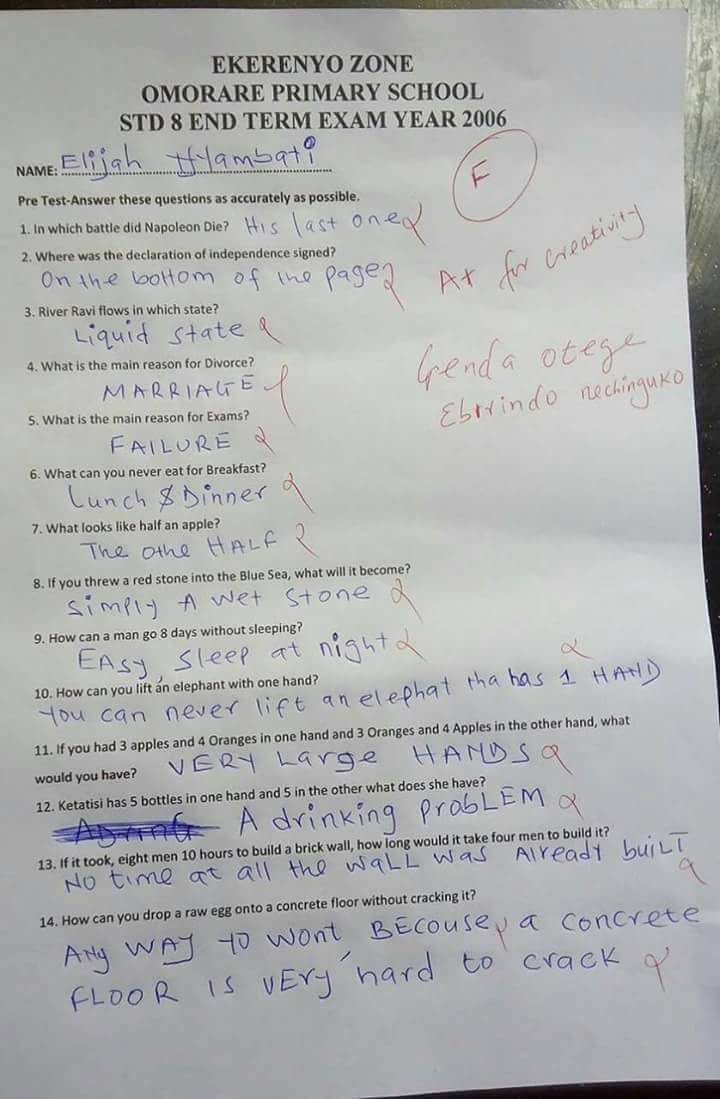 EKERENYO ZONE
OMORARE PRIMARY SCHOOL
STD 8 END TERM EXAM YEAR 2006
NAME: Elijah Nyambati
F
Pre Test-Answer these questions as accurately as possible.
1. In which battle did Napoleon Die? His last one
2. Where was the declaration of independence signed?
On the bottom of the page
A+ for creativity
3. River Ravi flows in which state?
Liquid state
4. What is the main reason for Divorce?
MARRIAGE
Genda otege
Ebirindo nechinguko
5. What is the main reason for Exams?
FAILURE
6. What can you never eat for Breakfast?
Lunch & Dinner
7. What looks like half an apple?
The othe HALF
8. If you threw a red stone into the Blue Sea, what will it become?
Simply A wet Stone
9. How can a man go 8 days without sleeping?
EAsy, Sleep at night
10. How can you lift an elephant with one hand?
You can never lift an elephat tha has 1 HAND
11. If you had 3 apples and 4 Oranges in one hand and 3 Oranges and 4 Apples in the other hand, what
would you have? VERY Large HANDS
12. Ketatisi has 5 bottles in one hand and 5 in the other what does she have?
A drinking proBLEM
13. If it took, eight men 10 hours to build a brick wall, how long would it take four men to build it?
No time at all the wall was Already built
14. How can you drop a raw egg onto a concrete floor without cracking it?
ANy WAY yo wont BECouse, a concrete
FLOOR IS VEry hard to crack